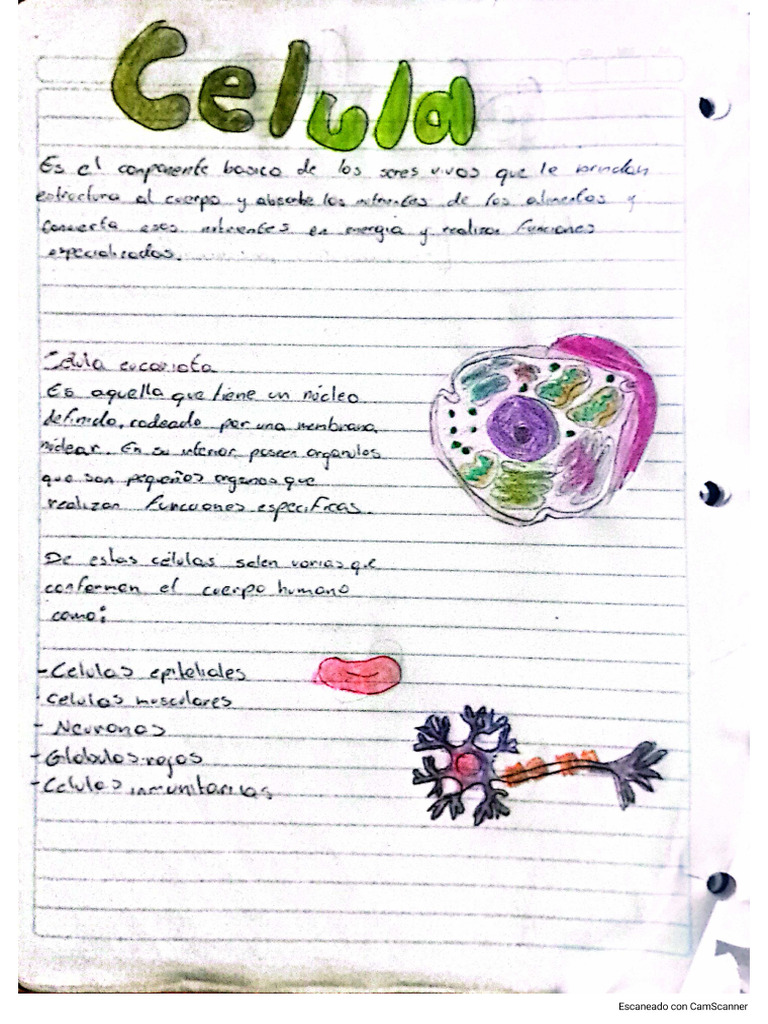 Celula
Es el componente basico de los seres vivos que le brindan
estructura al cuerpo y absorbe los nutrientes de los alimentos y
convierta esos nutrientes en energia y realizar funciones
especializadas.
Celula eucariota
Es aquella que tiene un núcleo
definido, rodeado por una membrana
nuclear. En su interior poseen organulos
que son pequeños organos que
realizan funciones especificas.
De estas células salen varias que
conforman el cuerpo humano
como:
- Celulas epiteliales
- Celulas musculares
- Neuronas
- Glóbulos rojos
- Celulas inmunitarias
Escaneado con CamScanner